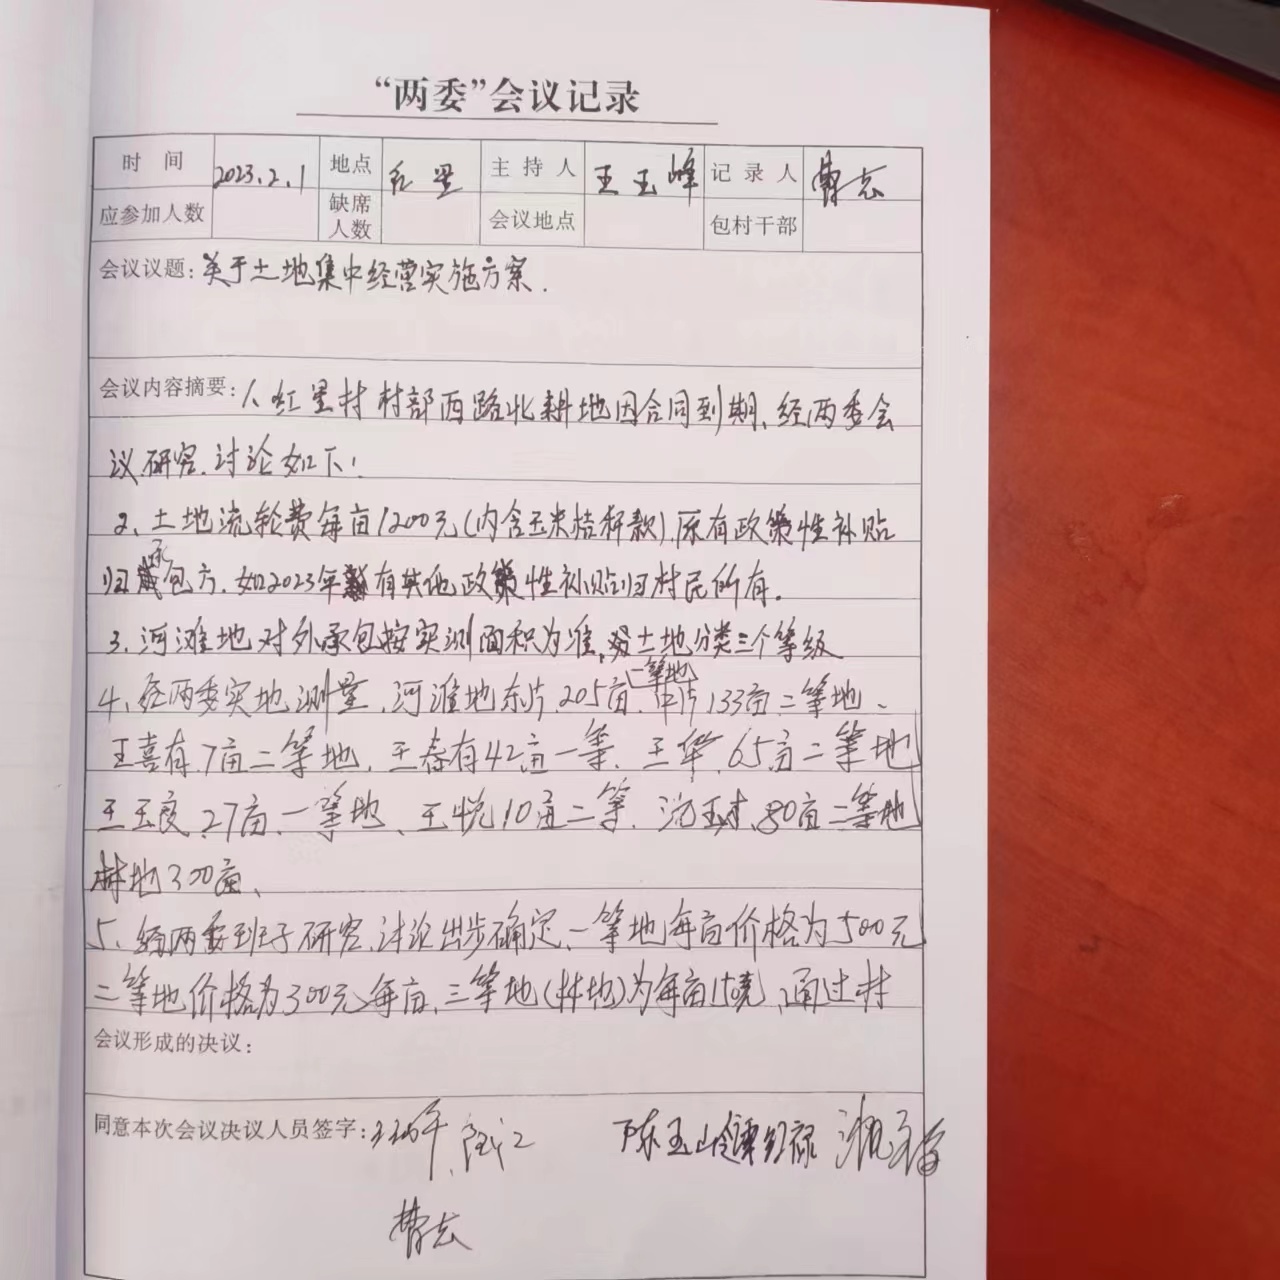 “两委”会议记录
时 间 2023.2.1 地点 红星 主 持 人 王玉峰 记 录 人 曹志
应参加人数 缺席人数 会议地点 包村干部
会议议题：关于土地集中经营实施方案.
会议内容摘要：1、红星村村部西路北耕地因合同到期、经两委会
议研究.讨论如下：
2、土地流轮费每亩1200元(内含玉米桔秆款).原有政策性补贴
归承包方.如2023年有其他政策性补贴归村民所有.
3、河滩地对外承包按实测面积为准,土地分类三个等级
4、经两委实地测量.河滩地东片.205亩.一等地 中片133亩.二等地、
王喜有.7亩二等地.王春有42亩一等.王华.65亩二等地
王玉良.27亩.一等地、王悦10亩二等.80亩二等地
林地300亩、
5、经两委班子研究.讨论出步确定.一等地每亩价格为500元
二等地价格为300元每亩.三等地(林地)为每亩150元.通过村
会议形成的决议：
同意本次会议决议人员签字: 陈玉山
曹志